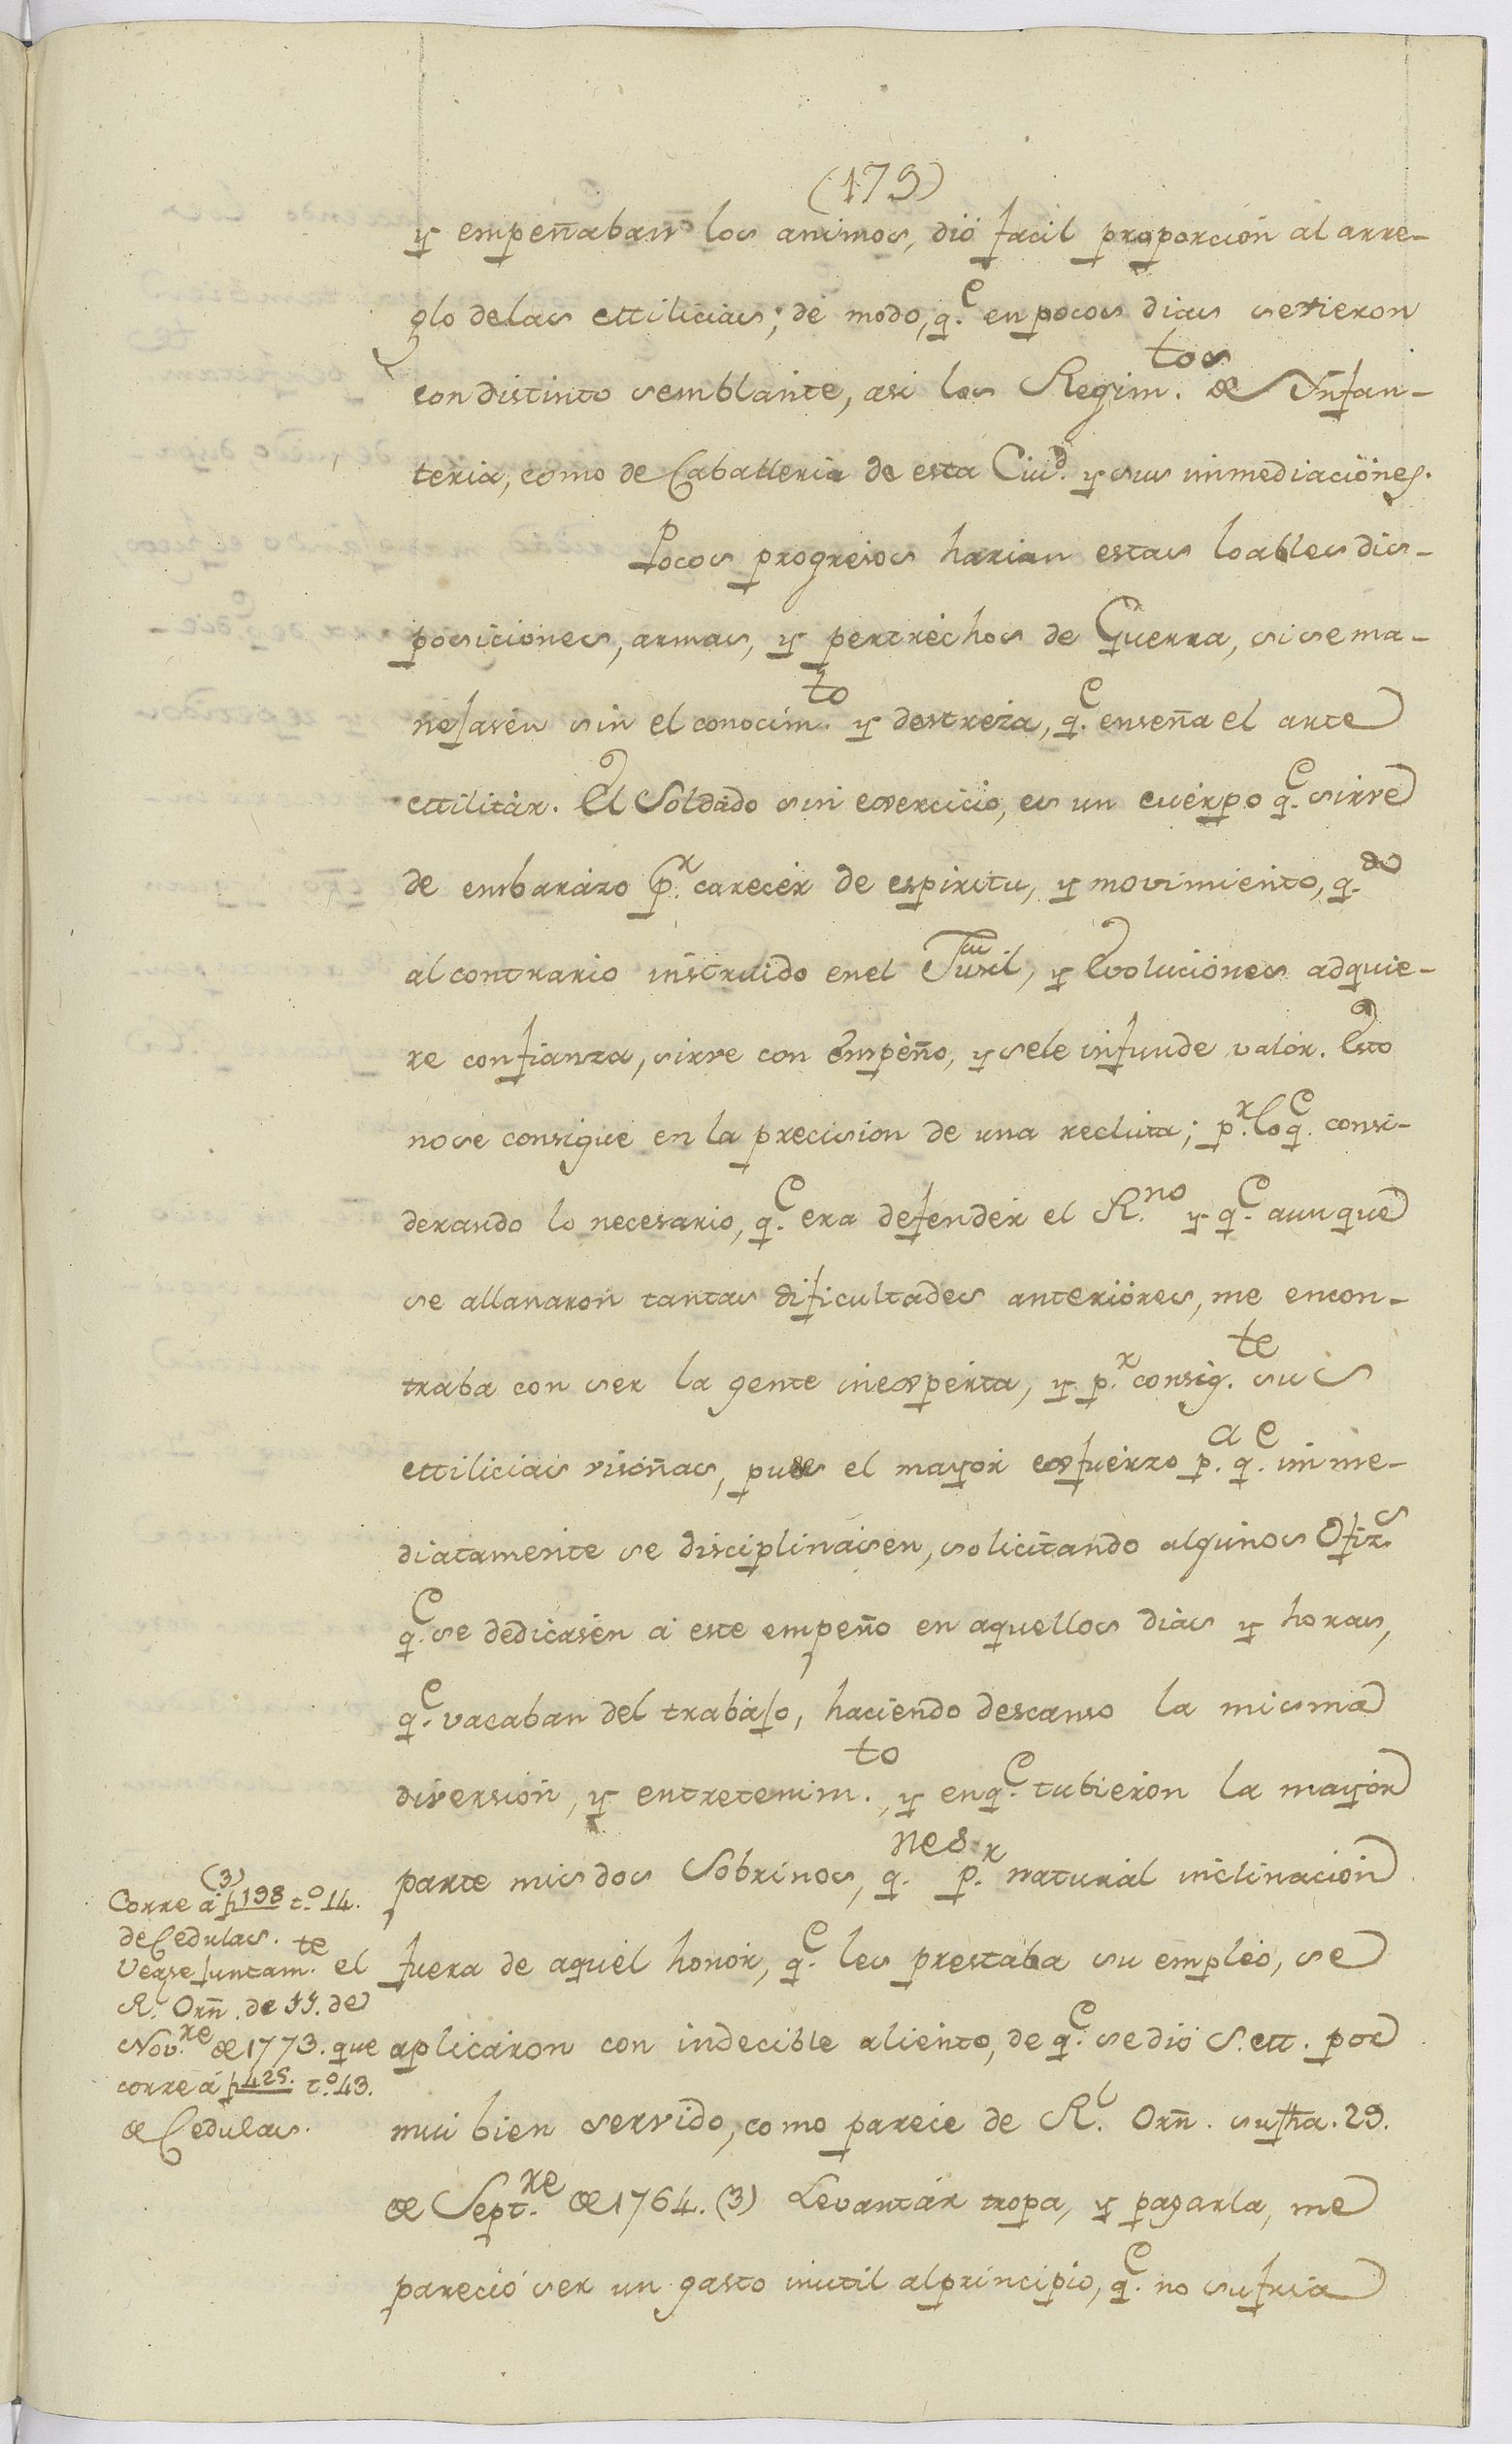 (179)
y empeñaban los animos, dió facil proporción al arre-
glo delas Milicias; de modo, q.e en pocos dias se vieron
con distinto semblante, asi los Regim.tos de Ynfan-
teria, como de Caballeria de esta Ciud.d y sus inmediaciónes.
Pocos progresos harian estas loables dis-
posiciones, armas, y pertrechos de Guerra, si se ma-
nejasen sin el conocim.to y destreza, q.e enseña el arte
Militár. El Soldado sin exercicio, es un cuérpo q.e sirve
de embarázo p.r carecér de espiritu, y movimiento, q.do
al contrario instruido en el Fusil, y Evoluciónes adquie-
re confianza, sirve con empéño, y sele infunde valór. Esto
no se consigue en la precision de una recluta; p.r lo q.e consi-
derando lo necesario, q.e era defendér el R.no y q.e aunque
se allanaron tantas dificultades anterióres, me encon-
traba con ser la gente inexpérta, y p.r consig.te sus
Milicias visoñas, puse el mayór exfuérzo p.a q.e inme-
diatamente se disciplinásen, solicitando algunos Ofiz.s
q.e se dedicasén á este empeño en aquellos dias y horas,
q.e vacaban del trabájo, haciendo descanso la misma
diversión, y entretenim.to, y en q.e tubiéron la mayór
parte mis dos Sobrinos, q.nes p.r naturál inclinación
fuera de aquél honór, q.e les prestaba su empléo, se
aplicáron con indecible aliento, de q.e se dió S.M. por
mui bien servido, como parece de R.l Orñ. su fha. 29.
de Sept.re de 1764. (3) Levantár tropa, y pagarla, me
pareció ser un gasto inutil al principio, q.e no sufria
(3)
Corre á f 198 t.o 14.
de Cedulas.
Vease juntam.te el
R. Orñ. de 11. de
Nov.re de 1773. que
corre á f 425. t.o 43.
de Cedulas.